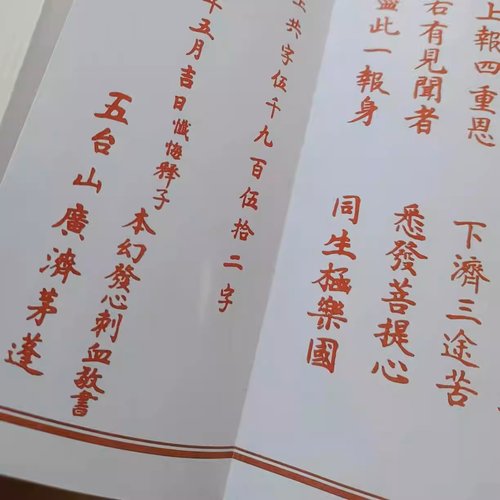 上報四重恩
下濟三途苦
若有見聞者
悉發菩提心
盡此一報身
同生極樂國
上共字伍千九百伍拾二字
年五月吉日懺悔释子
本幻發心刺血敬書
五台山廣濟茅蓬